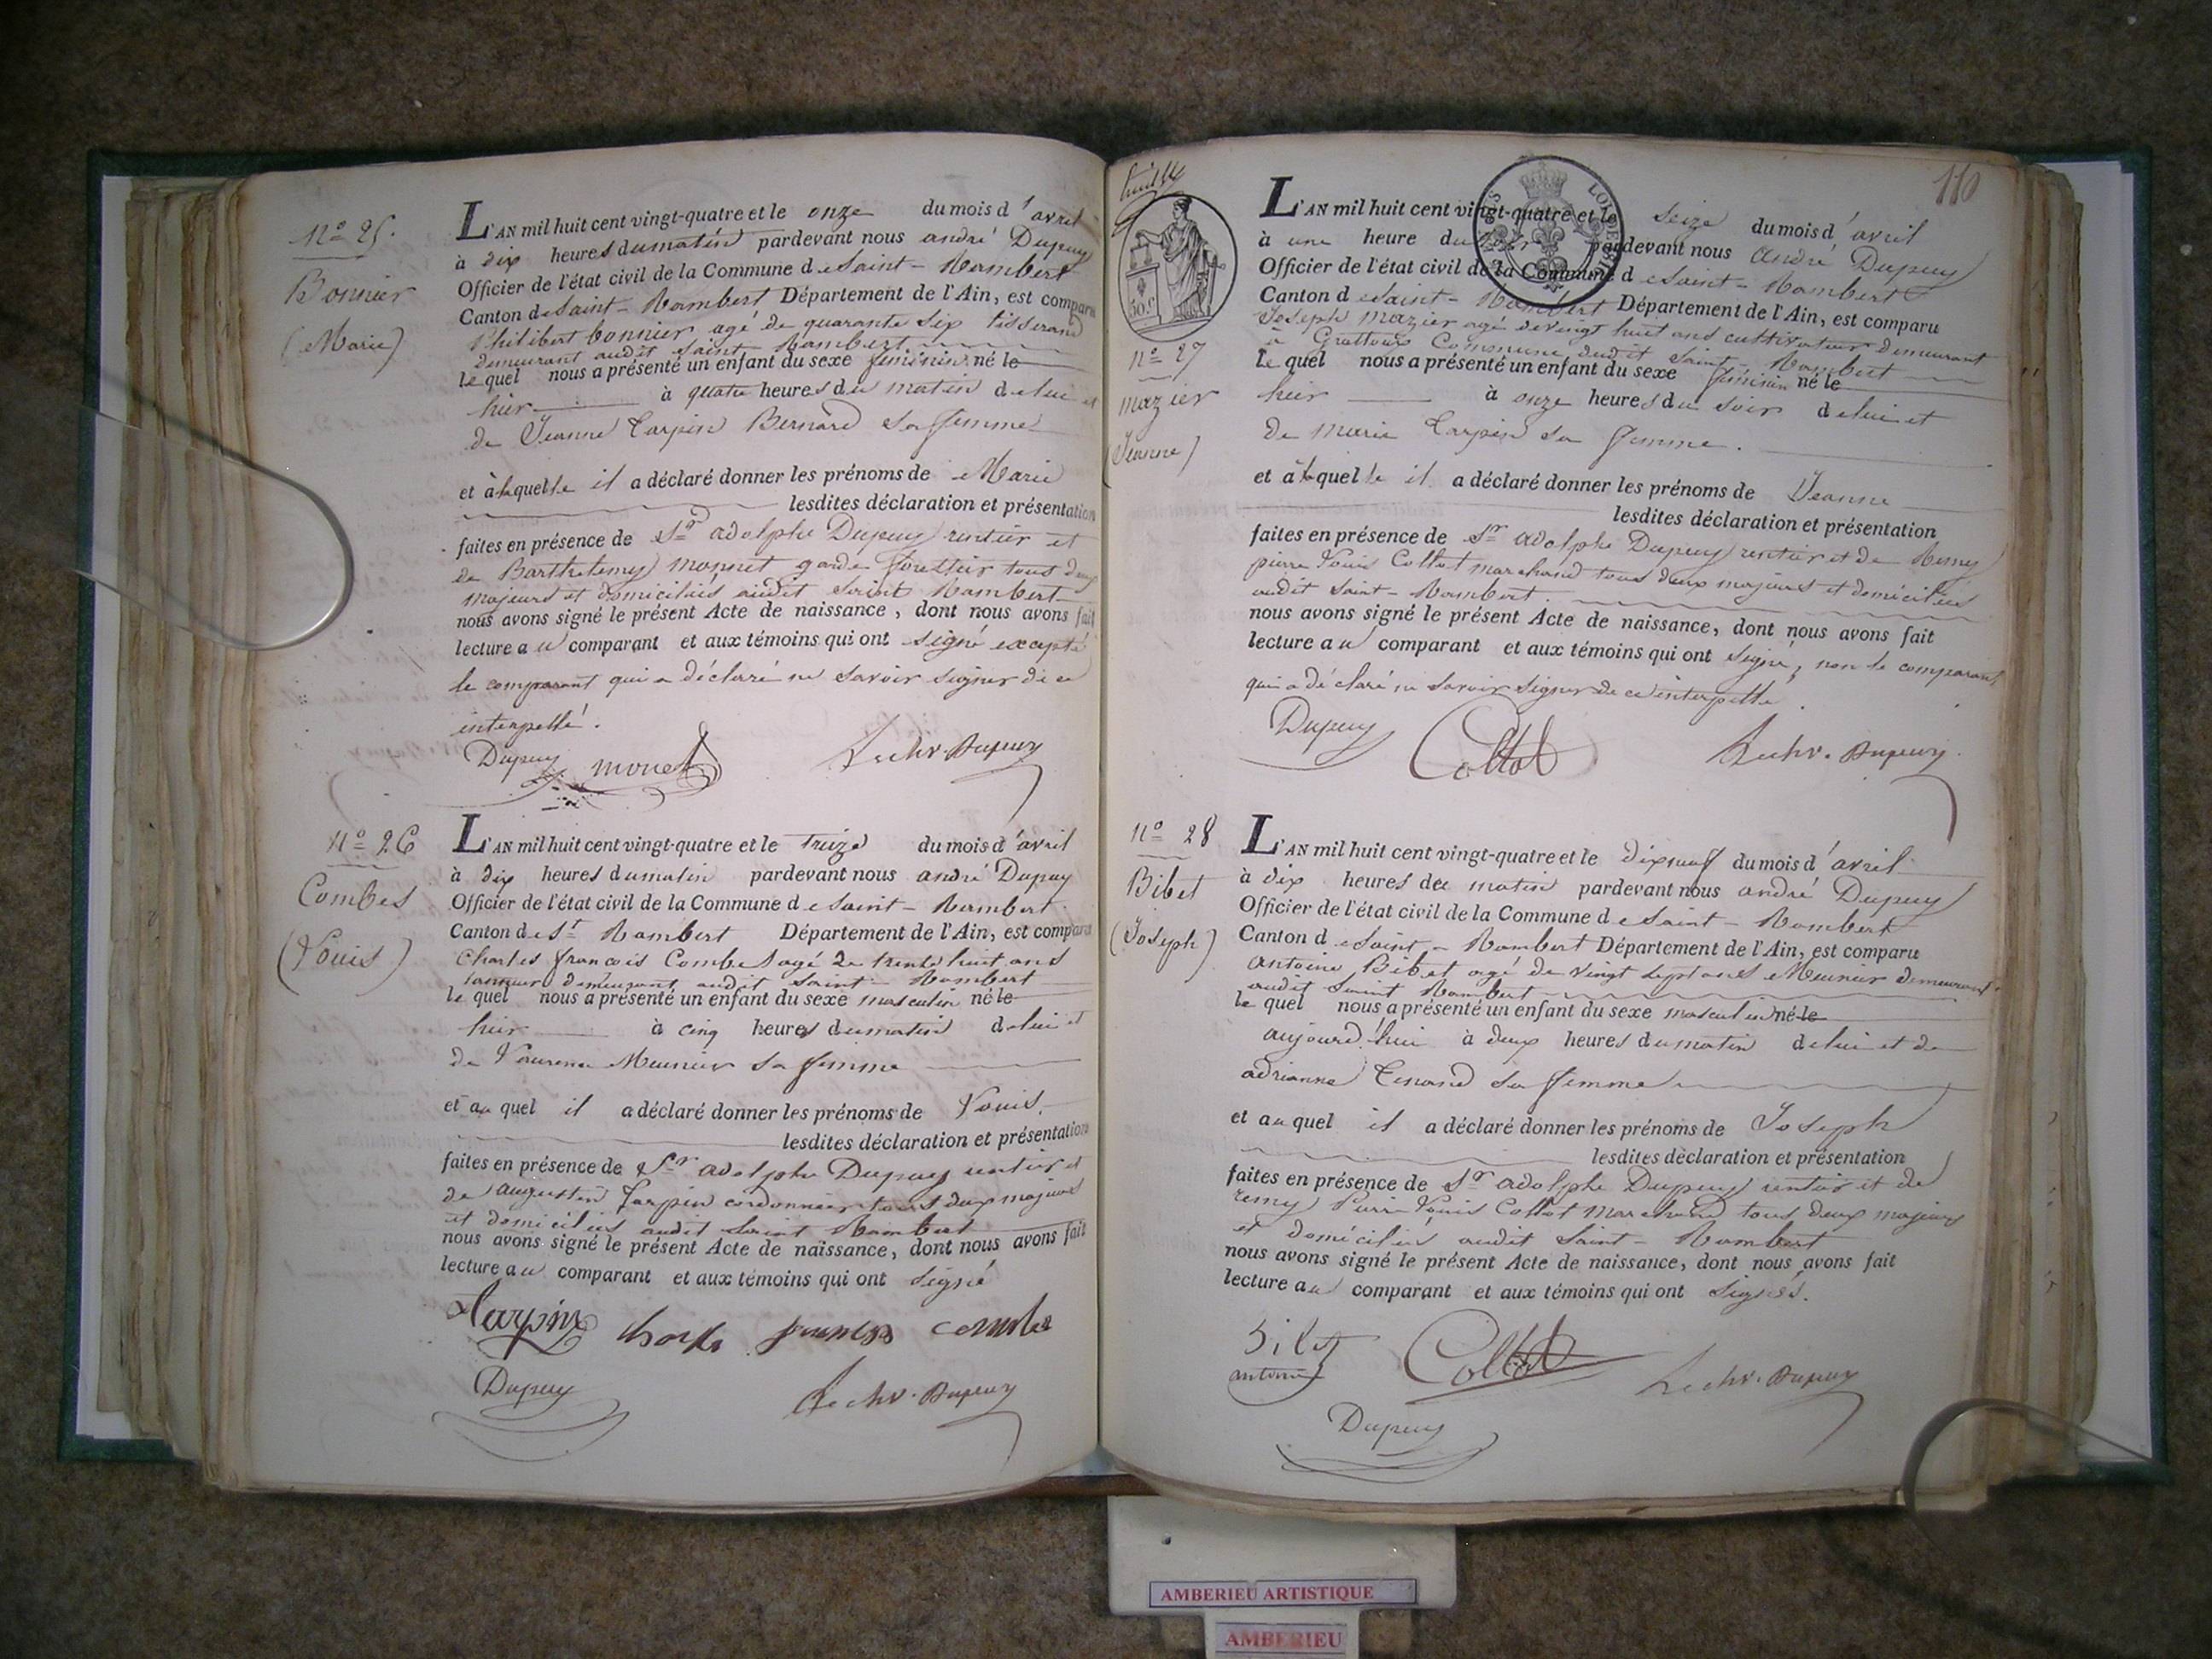 nº 25.
Bonnier
(Marie)
L'AN mil huit cent vingt-quatre et le onze du mois d'avril
à dix heures du matin pardevant nous andré Dupuy
Officier de l'état civil de la Commune de Saint-Rambert
Canton de Saint-Rambert Département de l'Ain, est comparu
Philibert bonnier agé de quarante six tisserand
demeurant audit Saint-Rambert
lequel nous a présenté un enfant du sexe féminin né le
hier à quatre heures du matin de lui et
de Jeanne Tarpin Bernard sa femme
et à laquelle il a déclaré donner les prénoms de Marie
lesdites déclaration et présentation
faites en présence de Sr adolphe Dupuy rentier et
de Barthelemy monnet garde forestier tous deux
majeurs et domiciliés audit Saint Rambert
nous avons signé le présent Acte de naissance, dont nous avons fait
lecture au comparant et aux témoins qui ont signé excepté
le comparant qui a déclaré ne savoir signer de ce
interpellé.
Dupuy monet Dupuy
nº 26
Combes
(Louis)
L'AN mil huit cent vingt-quatre et le treize du mois d'avril
à dix heures du matin pardevant nous andré Dupuy
Officier de l'état civil de la Commune de Saint-Rambert
Canton de St Rambert Département de l'Ain, est comparu
Charles françois Combes agé de trente huit ans
tanneur demeurant audit Saint-Rambert
lequel nous a présenté un enfant du sexe masculin né le
hier à cinq heures du matin de lui et
de Laurence Meunier sa femme
et auquel il a déclaré donner les prénoms de Louis.
lesdites déclaration et présentation
faites en présence de Sr adolphe Dupuy rentier et
de augustin Tarpin cordonnier tous deux majeurs
et domiciliés audit Saint Rambert
nous avons signé le présent Acte de naissance, dont nous avons fait
lecture au comparant et aux témoins qui ont signé
Tarpin Charles françois combes
Dupuy Dupuy
110
50 c.
nº 27
mazier
(Jeanne)
L'AN mil huit cent vingt-quatre et le seize du mois d'avril
à une heure du soir pardevant nous André Dupuy
Officier de l'état civil de la Commune de Saint-Rambert
Canton de Saint-Rambert Département de l'Ain, est comparu
Joseph mazier agé de vingt huit ans cultivateur demeurant
à Grattoux Commune dudit Saint-Rambert
lequel nous a présenté un enfant du sexe féminin né le
hier à onze heures du soir de lui et
de marie Tarpin sa femme.
et à laquelle il a déclaré donner les prénoms de Jeanne
lesdites déclaration et présentation
faites en présence de Sr adolphe Dupuy rentier et de Remy
pierre Louis Collot marchand tous deux majeurs et domiciliés
audit Saint-Rambert.
nous avons signé le présent Acte de naissance, dont nous avons fait
lecture au comparant et aux témoins qui ont signé, non le comparant
qui a déclaré ne savoir signer de ce interpellé
Dupuy Collot Dupuy
nº 28
Bibet
(Joseph)
L'AN mil huit cent vingt-quatre et le dixneuf du mois d'avril
à dix heures du matin pardevant nous andré Dupuy
Officier de l'état civil de la Commune de Saint-Rambert
Canton de Saint-Rambert Département de l'Ain, est comparu
antoine Bibet agé de vingt sept ans Meunier demeurant
audit Saint Rambert
lequel nous a présenté un enfant du sexe masculin né le
aujourd'hui à deux heures du matin de lui et de
adrianne Tenand sa femme
et auquel il a déclaré donner les prénoms de Joseph
lesdites déclaration et présentation
faites en présence de Sr adolphe Dupuy rentier et de
remy Pierre Louis Collot marchand tous deux majeurs
et domiciliés audit Saint-Rambert
nous avons signé le présent Acte de naissance, dont nous avons fait
lecture au comparant et aux témoins qui ont signés.
Bibet antoine Collot Dupuy
Dupuy
AMBERIEU ARTISTIQUE
AMBERIEU